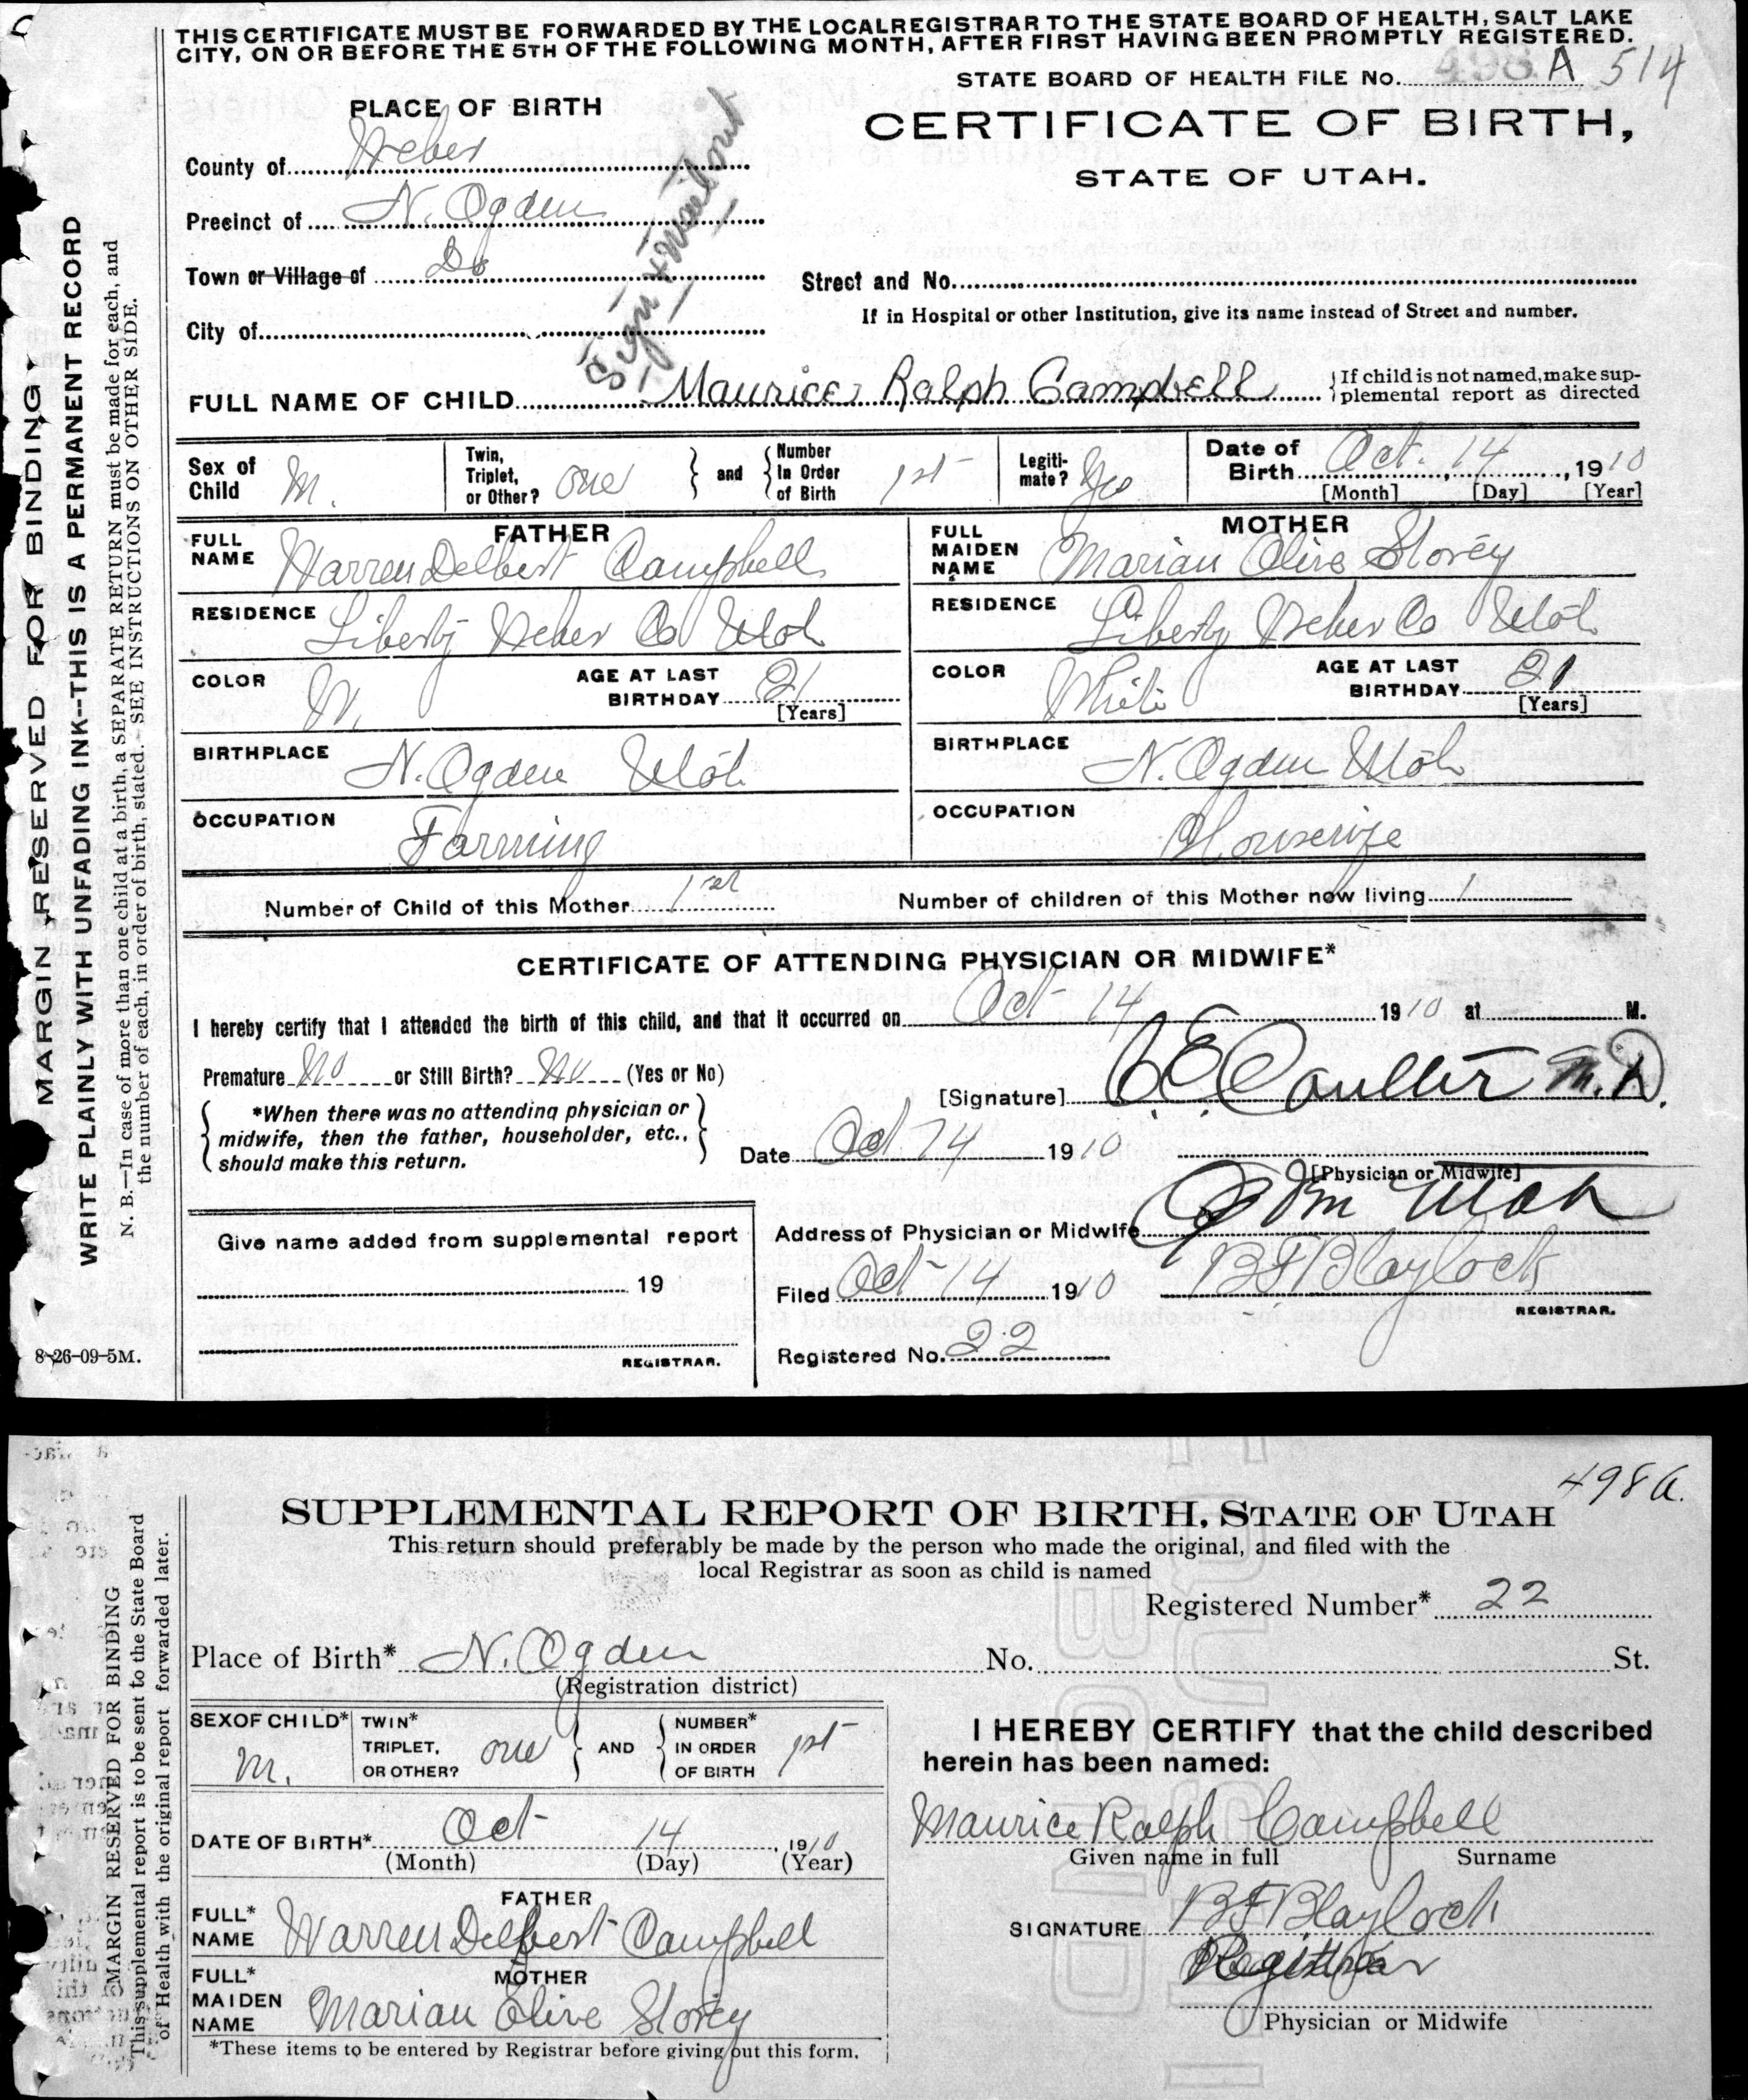 THIS CERTIFICATE MUST BE FORWARDED BY THE LOCAL REGISTRAR TO THE STATE BOARD OF HEALTH, SALT LAKE
CITY, ON OR BEFORE THE 5TH OF THE FOLLOWING MONTH, AFTER FIRST HAVING BEEN PROMPTLY REGISTERED.
STATE BOARD OF HEALTH FILE No. 498 A 514
PLACE OF BIRTH
CERTIFICATE OF BIRTH,
STATE OF UTAH.
County of Weber
Precinct of N. Ogden
Town or Village of Do
Street and No.
If in Hospital or other Institution, give its name instead of Street and number.
City of
Sign & mail out
FULL NAME OF CHILD Maurice Ralph Campbell
{If child is not named, make sup-
plemental report as directed
Sex of Child M.
Twin, Triplet, or Other? one } and { Number In Order of Birth 1st
Legiti-mate? Yes
Date of Birth Oct. 14, 1910
[Month] [Day] [Year]
FATHER
FULL NAME Warren Delbert Campbell
RESIDENCE Liberty Weber Co Utah
COLOR W. AGE AT LAST BIRTHDAY 21
[Years]
BIRTHPLACE N. Ogden Utah
OCCUPATION Farming
MOTHER
FULL MAIDEN NAME Marian Olive Storey
RESIDENCE Liberty Weber Co Utah
COLOR White AGE AT LAST BIRTHDAY 21
[Years]
BIRTHPLACE N. Ogden Utah
OCCUPATION Housewife
Number of Child of this Mother 1st Number of children of this Mother now living 1
CERTIFICATE OF ATTENDING PHYSICIAN OR MIDWIFE*
I hereby certify that I attended the birth of this child, and that it occurred on Oct 14 1910 at M.
Premature No or Still Birth? No (Yes or No)
[Signature] E Coulter M.D.
{ *When there was no attending physician or
midwife, then the father, householder, etc.,
should make this return. }
Date Oct 14 1910
[Physician or Midwife]
Address of Physician or Midwife Utah
Give name added from supplemental report
19
REGISTRAR.
Filed Oct 14 1910 BF Blaylock
REGISTRAR.
Registered No. 22
MARGIN RESERVED FOR BINDING
WRITE PLAINLY WITH UNFADING INK--THIS IS A PERMANENT RECORD
N. B.—In case of more than one child at a birth, a SEPARATE RETURN must be made for each, and
the number of each, in order of birth, stated. SEE INSTRUCTIONS ON OTHER SIDE.
8-26-09-5M.
498 A.
SUPPLEMENTAL REPORT OF BIRTH, STATE OF UTAH
This return should preferably be made by the person who made the original, and filed with the
local Registrar as soon as child is named
Registered Number* 22
Place of Birth* N. Ogden No. St.
(Registration district)
SEX OF CHILD* M.
TWIN* TRIPLET, OR OTHER? one } AND { NUMBER* IN ORDER OF BIRTH 1st
DATE OF BIRTH* Oct 14, 1910
(Month) (Day) (Year)
FATHER
FULL* NAME Warren Delbert Campbell
MOTHER
FULL* MAIDEN NAME Marian Olive Storey
*These items to be entered by Registrar before giving out this form.
I HEREBY CERTIFY that the child described
herein has been named:
Maurice Ralph Campbell
Given name in full Surname
SIGNATURE BF Blaylock
Registrar
Physician or Midwife
MARGIN RESERVED FOR BINDING
This supplemental report is to be sent to the State Board
of Health with the original report forwarded later.